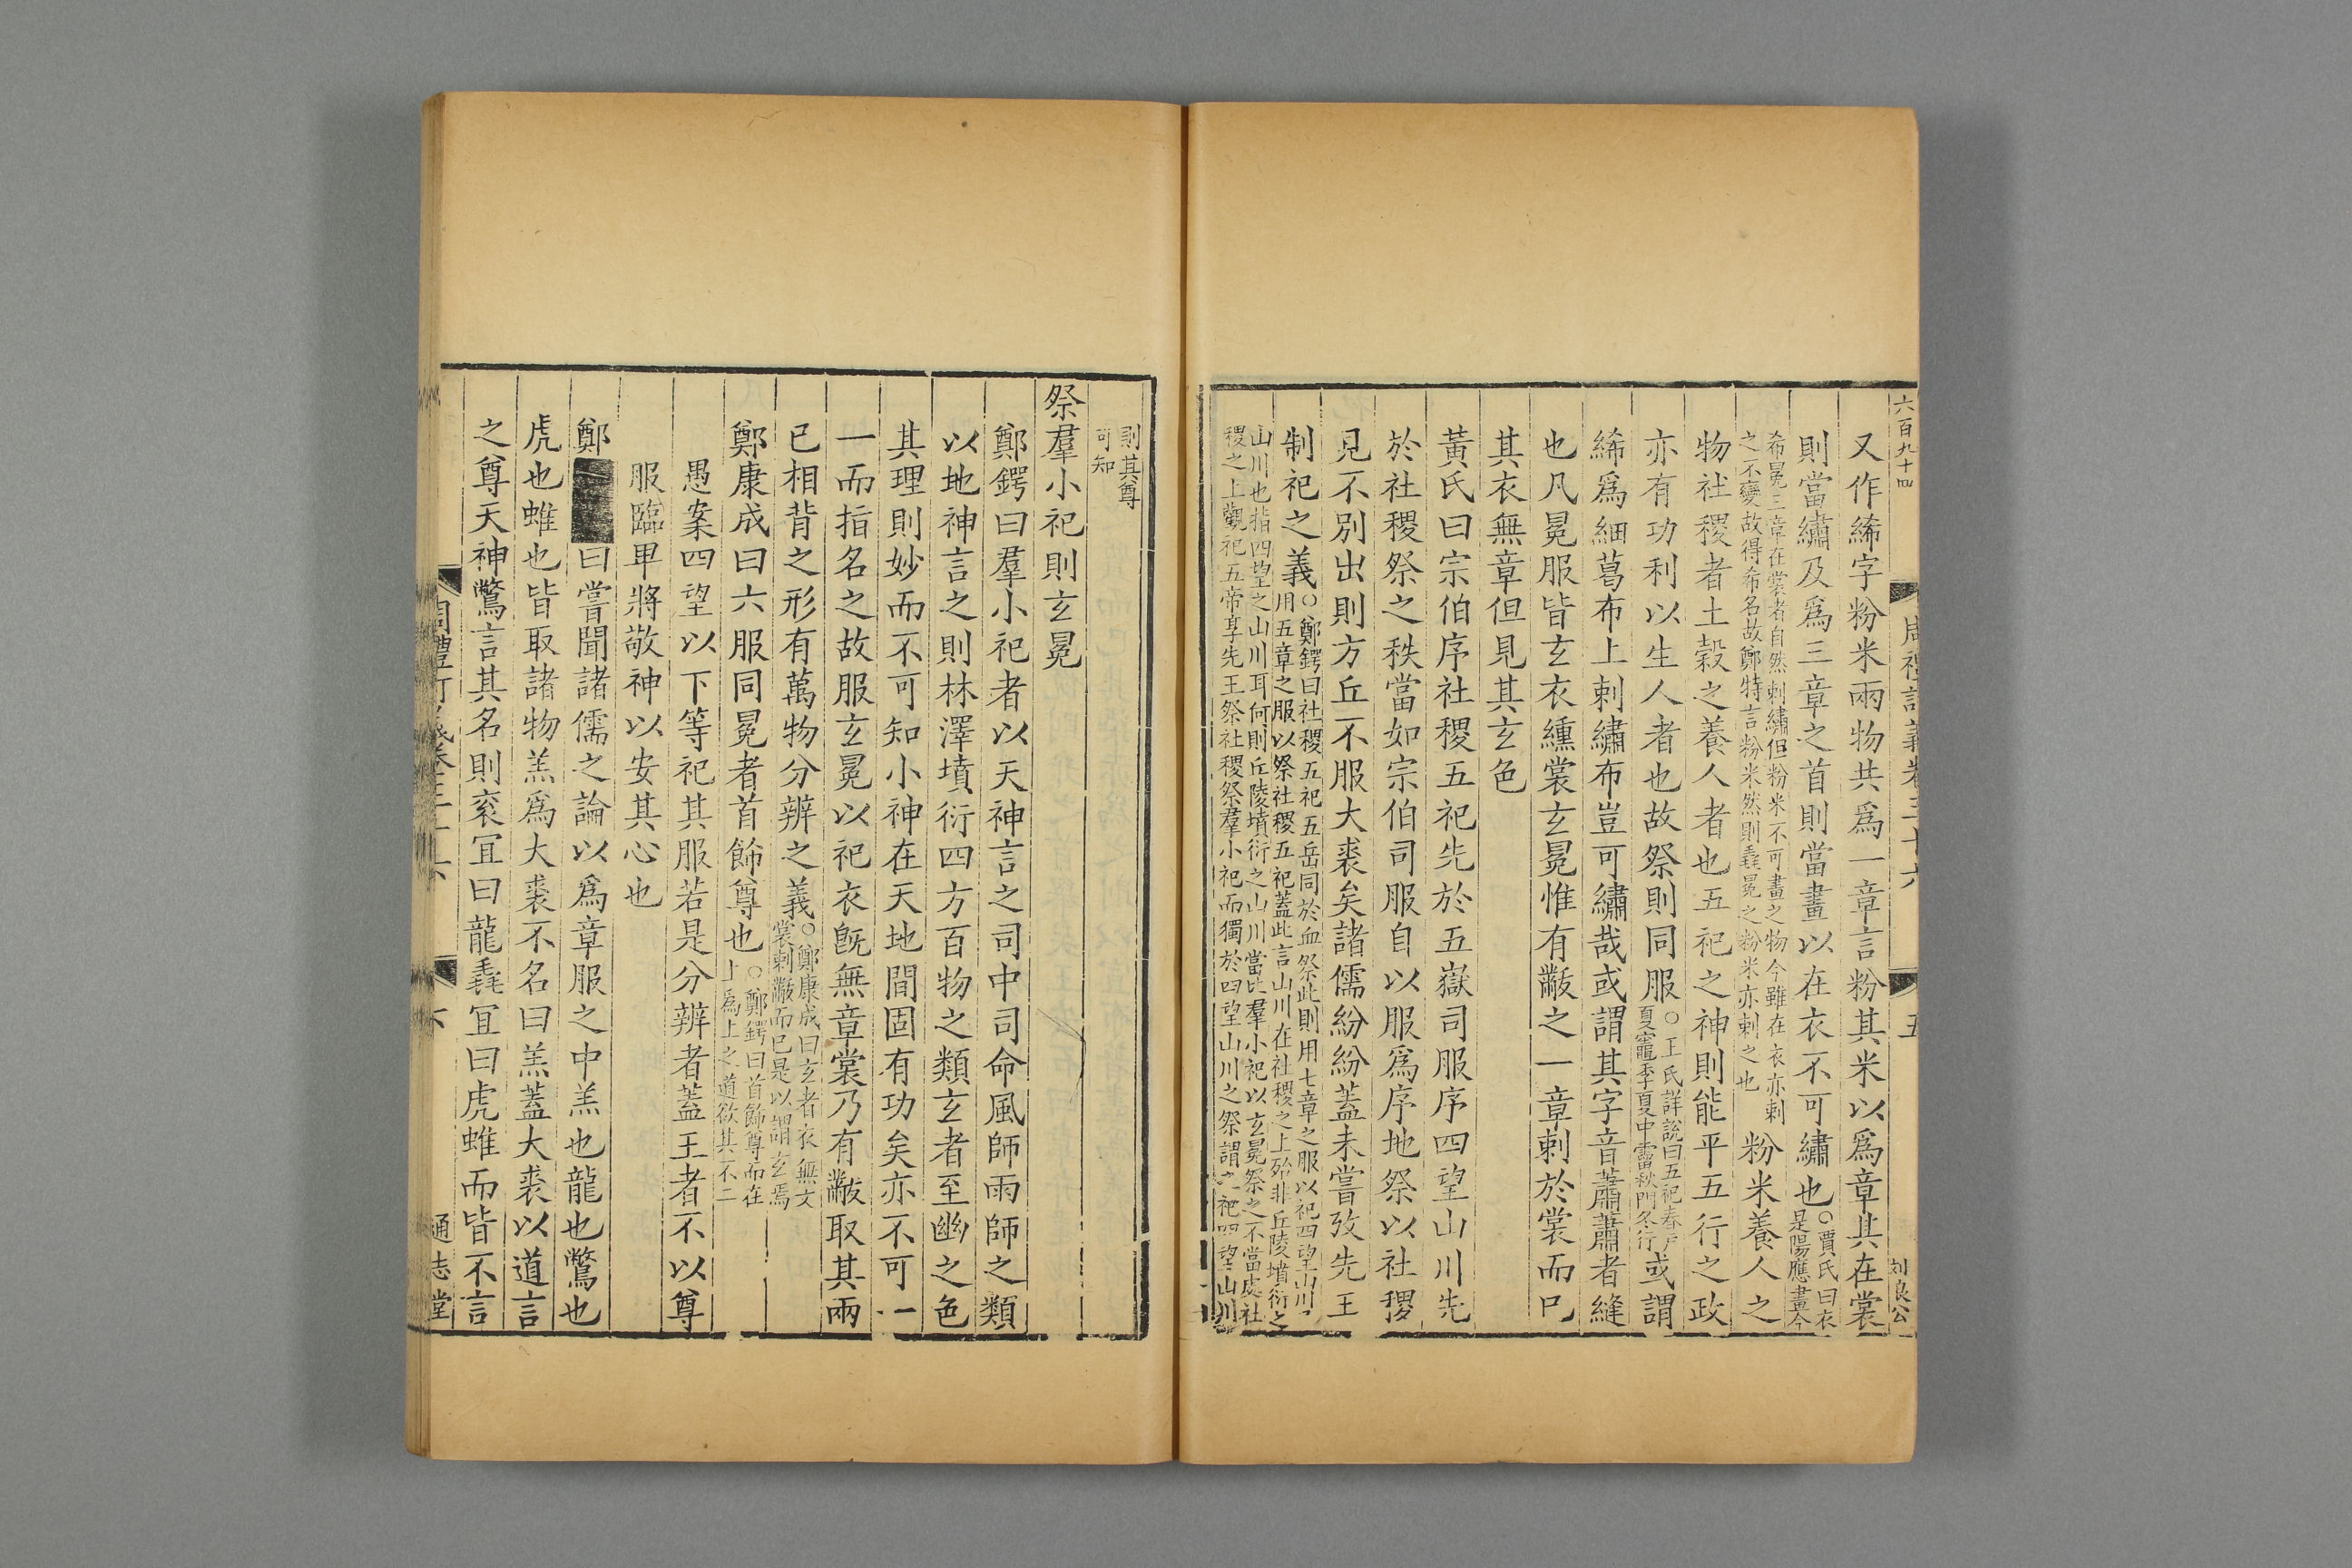 六百九十四
周禮訂義卷三十六
五
又作絺字粉米兩物共爲一章言粉其米以爲章其在裳
則當繡及爲三章之首則當畫以在衣不可繡也○賈氏曰衣是陽應畫今
希冕三章在裳者自然刺繡但粉米不可畫之物今雖在衣亦刺之不變故得希名故鄭特言粉米然則毳冕之粉米亦刺之也粉米養人之
物社稷者土穀之養人者也五祀之神則能平五行之政
亦有功利以生人者也故祭則同服○王氏詳說曰五祀春戶夏竈季夏中霤秋門冬行或謂
絺爲細葛布上刺繡布豈可繡哉或謂其字音黹黹者縫
也凡冕服皆玄衣纁裳玄冕惟有黻之一章刺於裳而已
其衣無章但見其玄色
黃氏曰宗伯序社稷五祀先於五嶽司服序四望山川先
於社稷祭之秩當如宗伯司服自以服爲序地祭以社稷
見不別出則方丘不服大裘矣諸儒紛紛蓋未嘗攷先王
制祀之義○鄭鍔曰社稷五祀五岳同於血祭此則用七章之服以祀四望山川用五章之服以祭社稷五祀蓋此言山川在社稷之上殆非丘陵墳衍之
山川也指四望之山川耳何則丘陵墳衍之山川當比羣小祀以玄冕祭之不當處社稷之上觀祀五帝享先王祭社稷祭羣小祀而獨於四望山川之祭謂之祀四望山川
則其尊可知
祭羣小祀則玄冕
鄭鍔曰羣小祀者以天神言之司中司命風師雨師之類
以地神言之則林澤墳衍四方百物之類玄者至幽之色
其理則妙而不可知小神在天地間固有功矣亦不可一
一而指名之故服玄冕以祀衣旣無章裳乃有黻取其兩
已相背之形有萬物分辨之義○鄭康成曰玄者衣無文裳刺黻而已是以謂玄焉
鄭康成曰六服同冕者首飾尊也○鄭鍔曰首飾尊而在上爲上之道欲其不二
愚案四望以下等祀其服若是分辨者蓋王者不以尊
服臨卑將敬神以安其心也
鄭曰嘗聞諸儒之論以爲章服之中羔也龍也鷩也
虎也蜼也皆取諸物羔爲大裘不名曰羔蓋大裘以道言
之尊天神鷩言其名則衮冝曰龍毳冝曰虎蜼而皆不言
周禮訂義卷三十六
六
通志堂